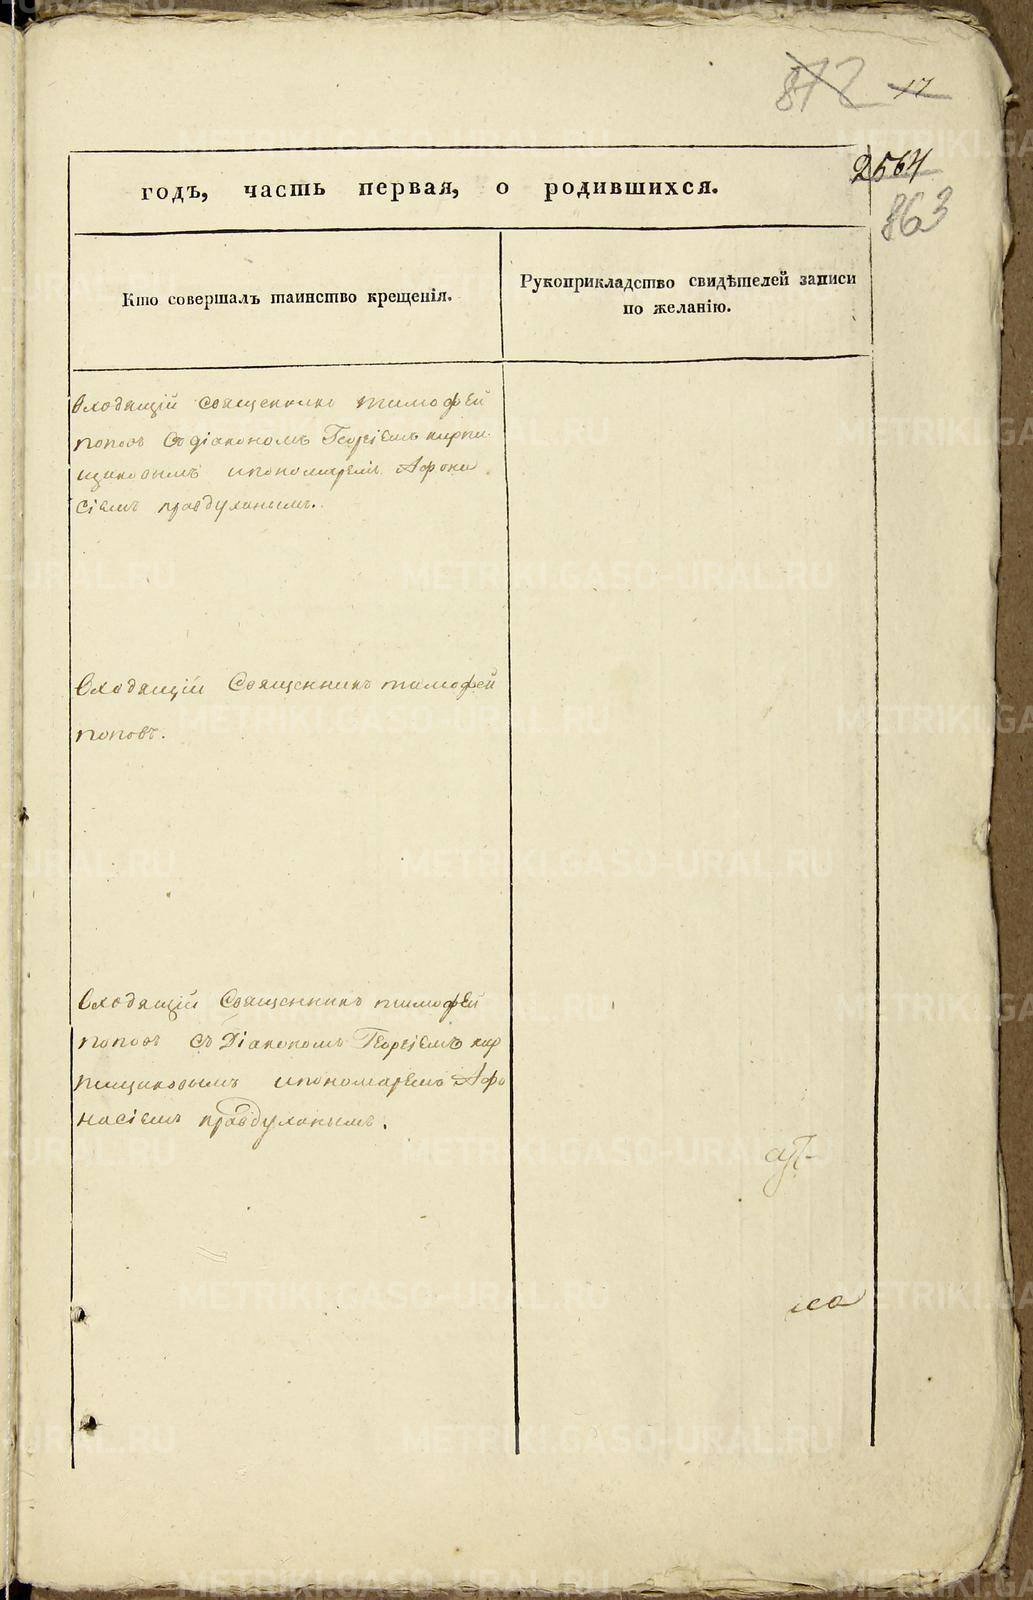 872 17
2564
863
годъ, часть первая, о родившихся.
Кто совершалъ таинство крещенія.
Рукоприкладство свидѣтелей записи
по желанію.
входящій Священникъ тимофей
поповъ Съ діакономъ Георгіемъ кирпи
щиковымъ ипономаремъ Афона
сіемъ правдухинымъ.
входящій Священникъ тимофей
поповъ.
входящій Священникъ тимофей
поповъ съ Діакономъ Георгіемъ кир
пищиковымъ ипономаремъ Афо
насіемъ правдухинымъ.
METRIKI.GASO-URAL.RU